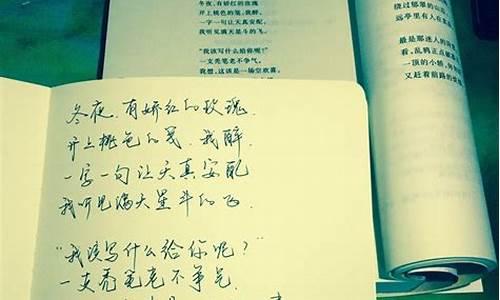 冬夜，有娇红的玫瑰
开上桃色的笺，我醉，
一字一句让天真安配，
我听见满天星斗的飞。
“我该写什么给你呢？”
一支秃笔老不争气，
我想，这该是一场空欢喜。
绕过郁翠的山
远亭里有人在
最是那迷人的
看，乱鸦正点破
一顶的小轿，
又赶着前路的
冬夜，有娇红的玫瑰，
开上桃色的笺，我醉，
一字一句让天真安配
我听见满天星斗的飞．
“我该写什么给你呢？”
一支秃笔老不争气，